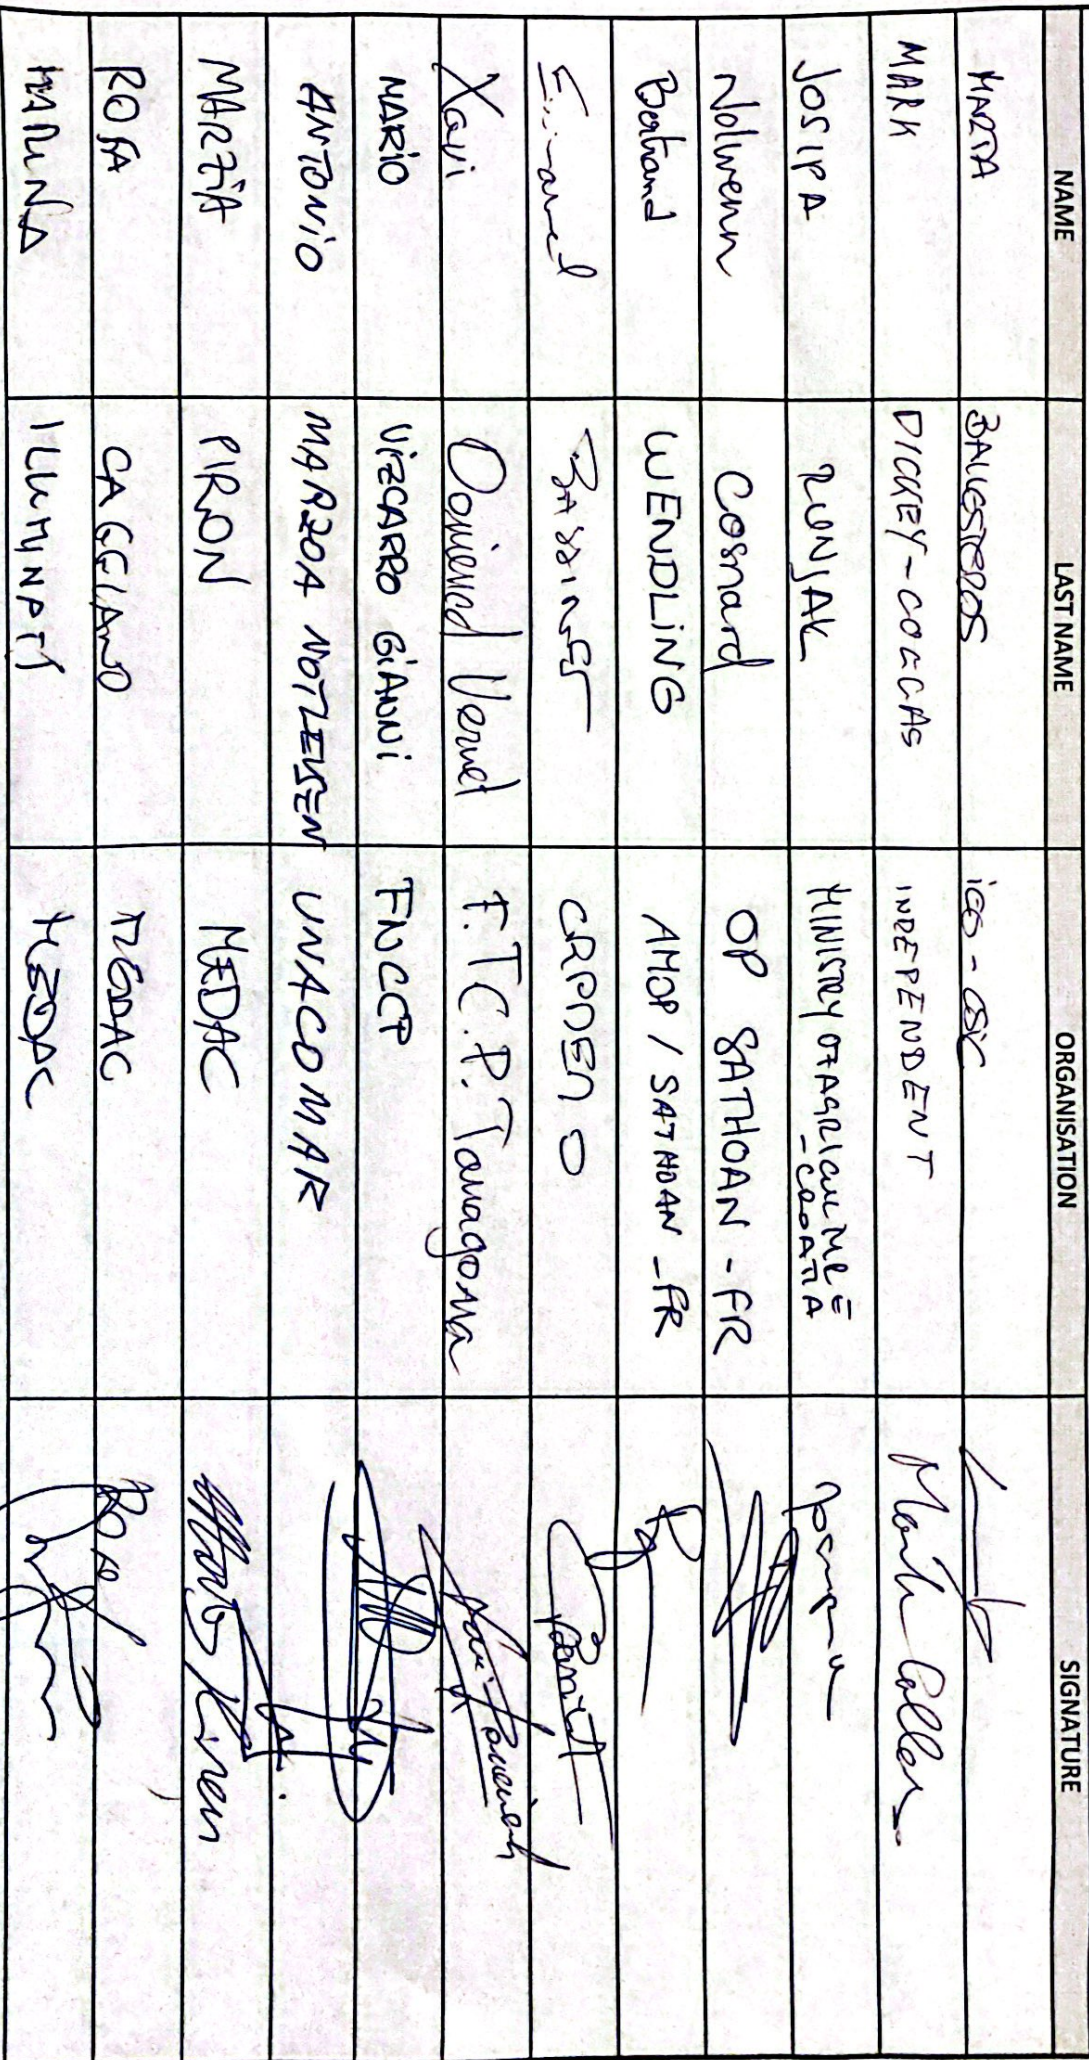 NAME LAST NAME ORGANISATION SIGNATURE
MARTA BALLESTEROS ICES - CSIC
MARK DICKEY-COLLAS INDEPENDENT
JOSIPA RUNJAK MINISTRY OF AGRICULTURE
- CROATIA
Nolwenn Cosnard OP SATHOAN - FR
Bertrand WENDLING AMOP / SATHOAN - FR
CRPMEM O
Xavi Domènech Vernet F.T.C.P. Tarragona
MARIO VIZCARRO GIANNI FNCCP
ANTONIO MARZOA NOTLEVSEN UNACOMAR
MARZIA PIRON MEDAC
ROSA CAGGIANO MEDAC
MARINA ILLUMINATI MEDAC